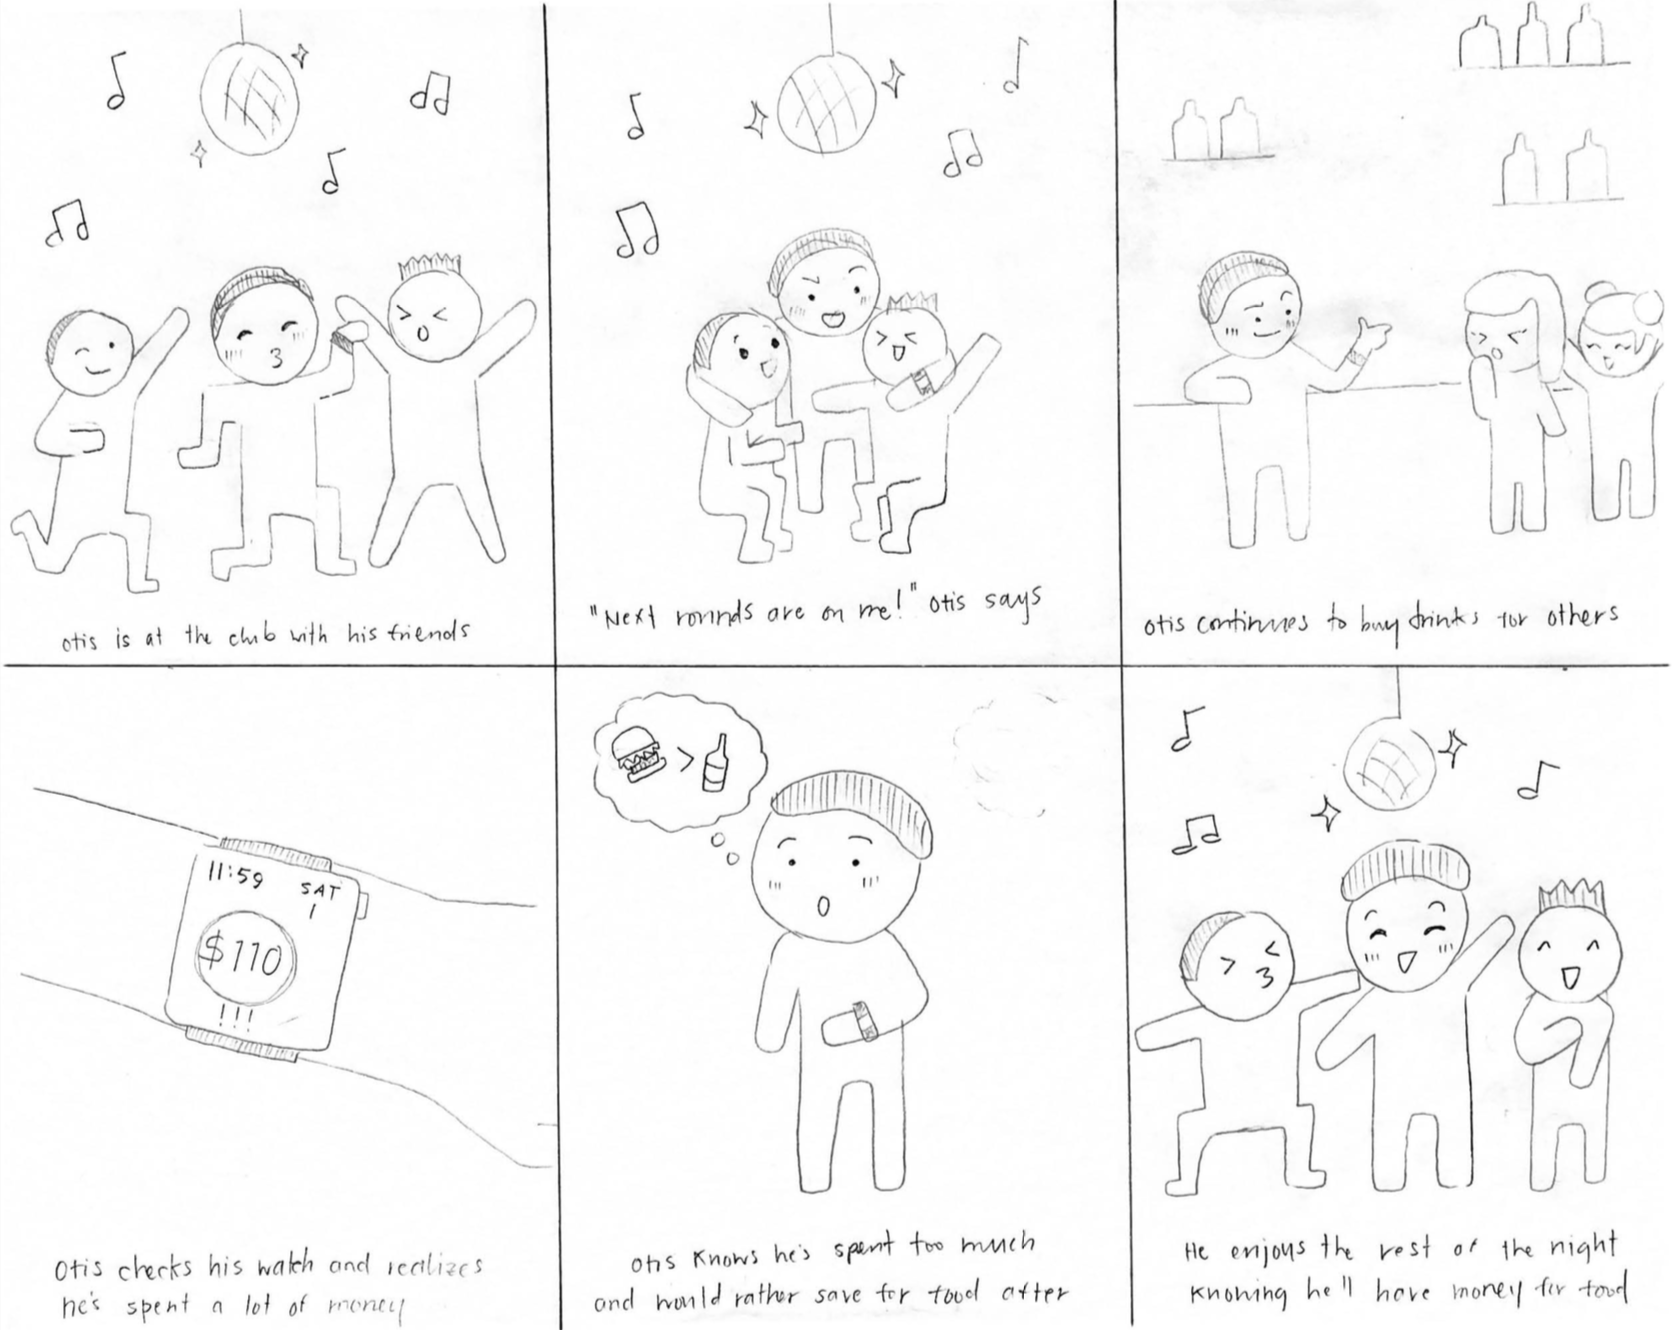 otis is at the club with his friends
"Next rounds are on me!" otis says
otis continues to buy drinks for others
11:59
SAT
1
$110
!!!
otis checks his watch and realizes
he's spent a lot of money
>
otis knows he's spent too much
and would rather save for food after
He enjoys the rest of the night
knowing he'll have money for food